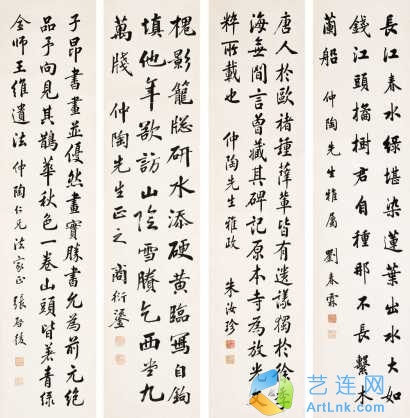 長江春水綠堪染蓮葉出水大如
錢江頭橘樹君自種那不長繫木
蘭船
仲陶先生雅屬 劉春霖
唐人於歐褚鍾薛輩皆有遺議獨於徐
海無間言曾藏其碑記原本寺為放光
粹所載也
仲陶先生雅政 朱汝珍
槐影籠窗研水添硬黃臨寫自鉤
填他年欲訪山陰雪賸乞西堂九
萬牋
仲陶先生正之 商衍鎏
子昂書畫並優然畫實勝書允為前元絕
品予向見其鵲華秋色一卷山頭皆著青綠
全師王維遺法
仲陶仁兄法家正 張啟後
艺连网
ArtLink.com